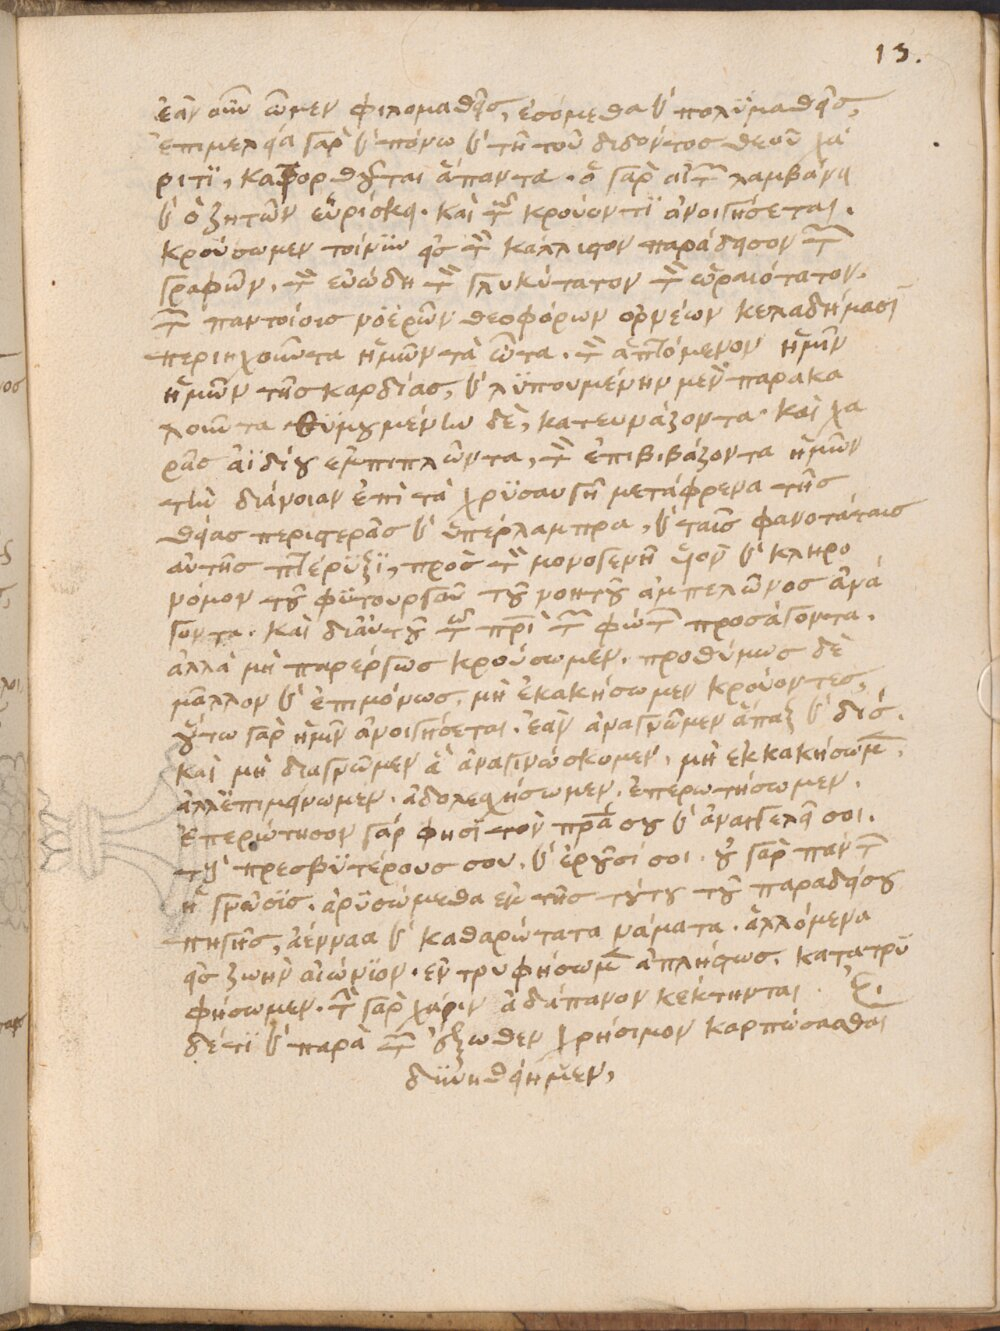 13.
ἐὰν οὖν ὦμεν φιλομαθεῖς, ἐσόμεθα καὶ πολυμαθεῖς,
ἐπιμελεία γὰρ καὶ πόνω καὶ τῆ τοῦ διδόντος θεοῦ χά
ριτϊ, κατορθοῦται ἅπαντα. ὁ γὰρ αἰτῶν λαμβάνει
καὶ ὁ ζητῶν εὑρίσκει. καὶ τῶ κρούοντϊ ἀνοιγήσεται.
κρούσωμεν τοίνϋν εἰς τὸν κάλλιστον παράδεισον τῶν
γραφῶν, τὸν εὐώδη τὸν γλυκύτατον τὸν ὡραιότατον.
τὸν παντοίοις νοερῶν θεοφόρων ὀρνέων κελαδήμασϊ
περιηχοῦντα ἡμῶν τὰ ὦτα. τὸν ἁπτόμενον ἡμῖν
ἡμῶν τῆς καρδίας, καὶ λϋπουμένην μὲν παρακα
λοῦντα θϋμουμένην δὲ, κατευνάζοντα. καὶ χα
ρᾶς ἀϊδίου ἐμπιπλῶντα, τὸν ἐπιβιβάζοντα ἡμῶν
τὴν διάνοιαν ἐπὶ τὰ χρϋσαυγῆ μετάφρενα τῆς
θείας περιστερᾶς καὶ ὑπέρλαμπρα, καὶ ταῖς φανοτάταις
αὐτῆς πτέρϋξϊ, πρὸς τὸν μονογενῆ υἱὸν καὶ κληρο
νόμον τοῦ φϋτουργοῦ τοῦ νοητοῦ ἀμπελῶνος ἀνά
γοντα. καὶ δι' αὐτοῦ τῶ πρὶ τῶν φώτων προσάγοντα.
ἀλλὰ μὴ παρέργως κρούσωμεν. προθύμως δὲ
μᾶλλον καὶ ἐπιμόνως. μὴ ἐκακήσωμεν κρούοντες,
οὕτω γὰρ ἡμῖν ἀνοιγήσεται. ἐὰν ἀναγνῶμεν ἅπαξ καὶ δίς.
καὶ μὴ διαγνῶμεν ἃ ἀναγινώσκομεν, μὴ ἐκκακήσωμεν.
ἀλλ' ἐπιμείνωμεν. ἀδολεσχήσωμεν. ἐπερωτήσωμεν.
ἐπερώτησον γάρ φησϊ τὸν πρᾶ σου καὶ ἀναγγελεῖ σοι.
τοὺς πρεσβϋτέρους σου. καὶ ἐροῦσί σοι. οὐ γὰρ πάντων
ἡ γνῶσϊς. ἀρϋσώμεθα ἐκ τῆς τούτου τοῦ παραδείσου
πηγῆς, ἀένναα καὶ καθαρώτατα νάματα. ἁλλόμενα
εἰς ζωὴν αἰώνϊον. ἐντρυφήσωμεν ἀπλήστως. κατατρϋ
φήσωμεν. τὴν γὰρ χάριν ἀδάπανον κέκτηνται. Εἰ
δέ τϊ καὶ παρὰ τῶν ἔξωθεν χρήσιμον καρπώσασθαι
δϋνηθείημεν,